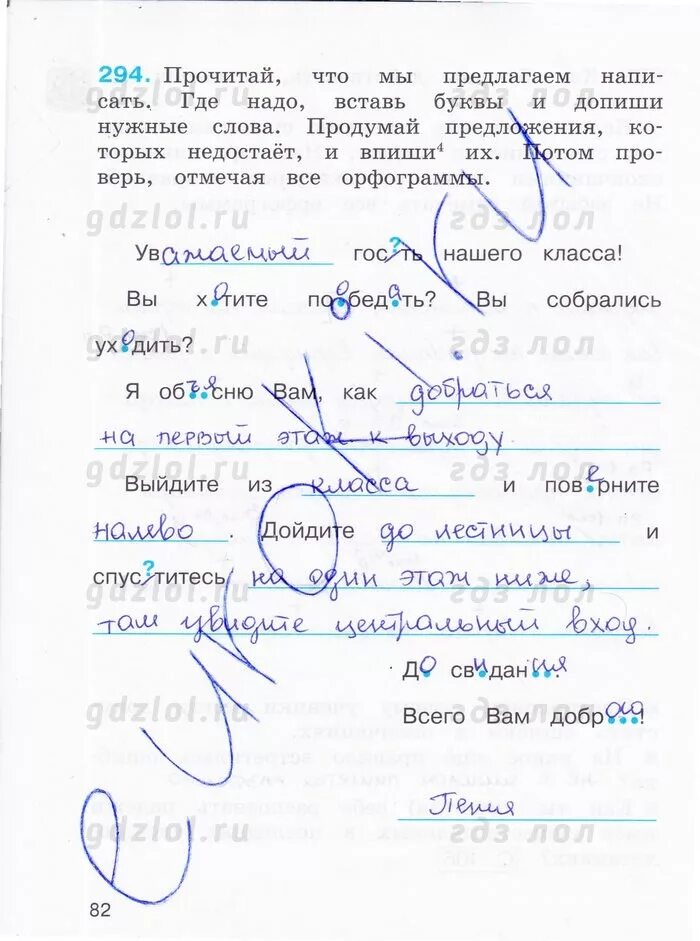 294. Прочитай, что мы предлагаем напи-
gdzlol.ru гдз лол
сать. Где надо, вставь буквы и допиши
нужные слова. Продумай предложения, ко-
торых недостаёт, и впиши⁴ их. Потом про-
верь, отмечая все орфограммы.
gdzlol.ru гдз лол
Уважаемый гос?ть нашего класса!
Вы хотите пообедать? Вы собрались
уходить?
gdzlol.ru гдз лол
Я объясню Вам, как добраться
на первый этаж к выходу.
gdzlol.ru гдз лол
Выйдите из класса и поверните
налево. Дойдите до лестницы и
спус?титесь на один этаж ниже,
gdzlol.ru гдз лол
там увидите центральный вход.
До свидания.
Всего Вам доброго!
gdzlol.ru гдз лол
gdzlol.ru гдз лол
82